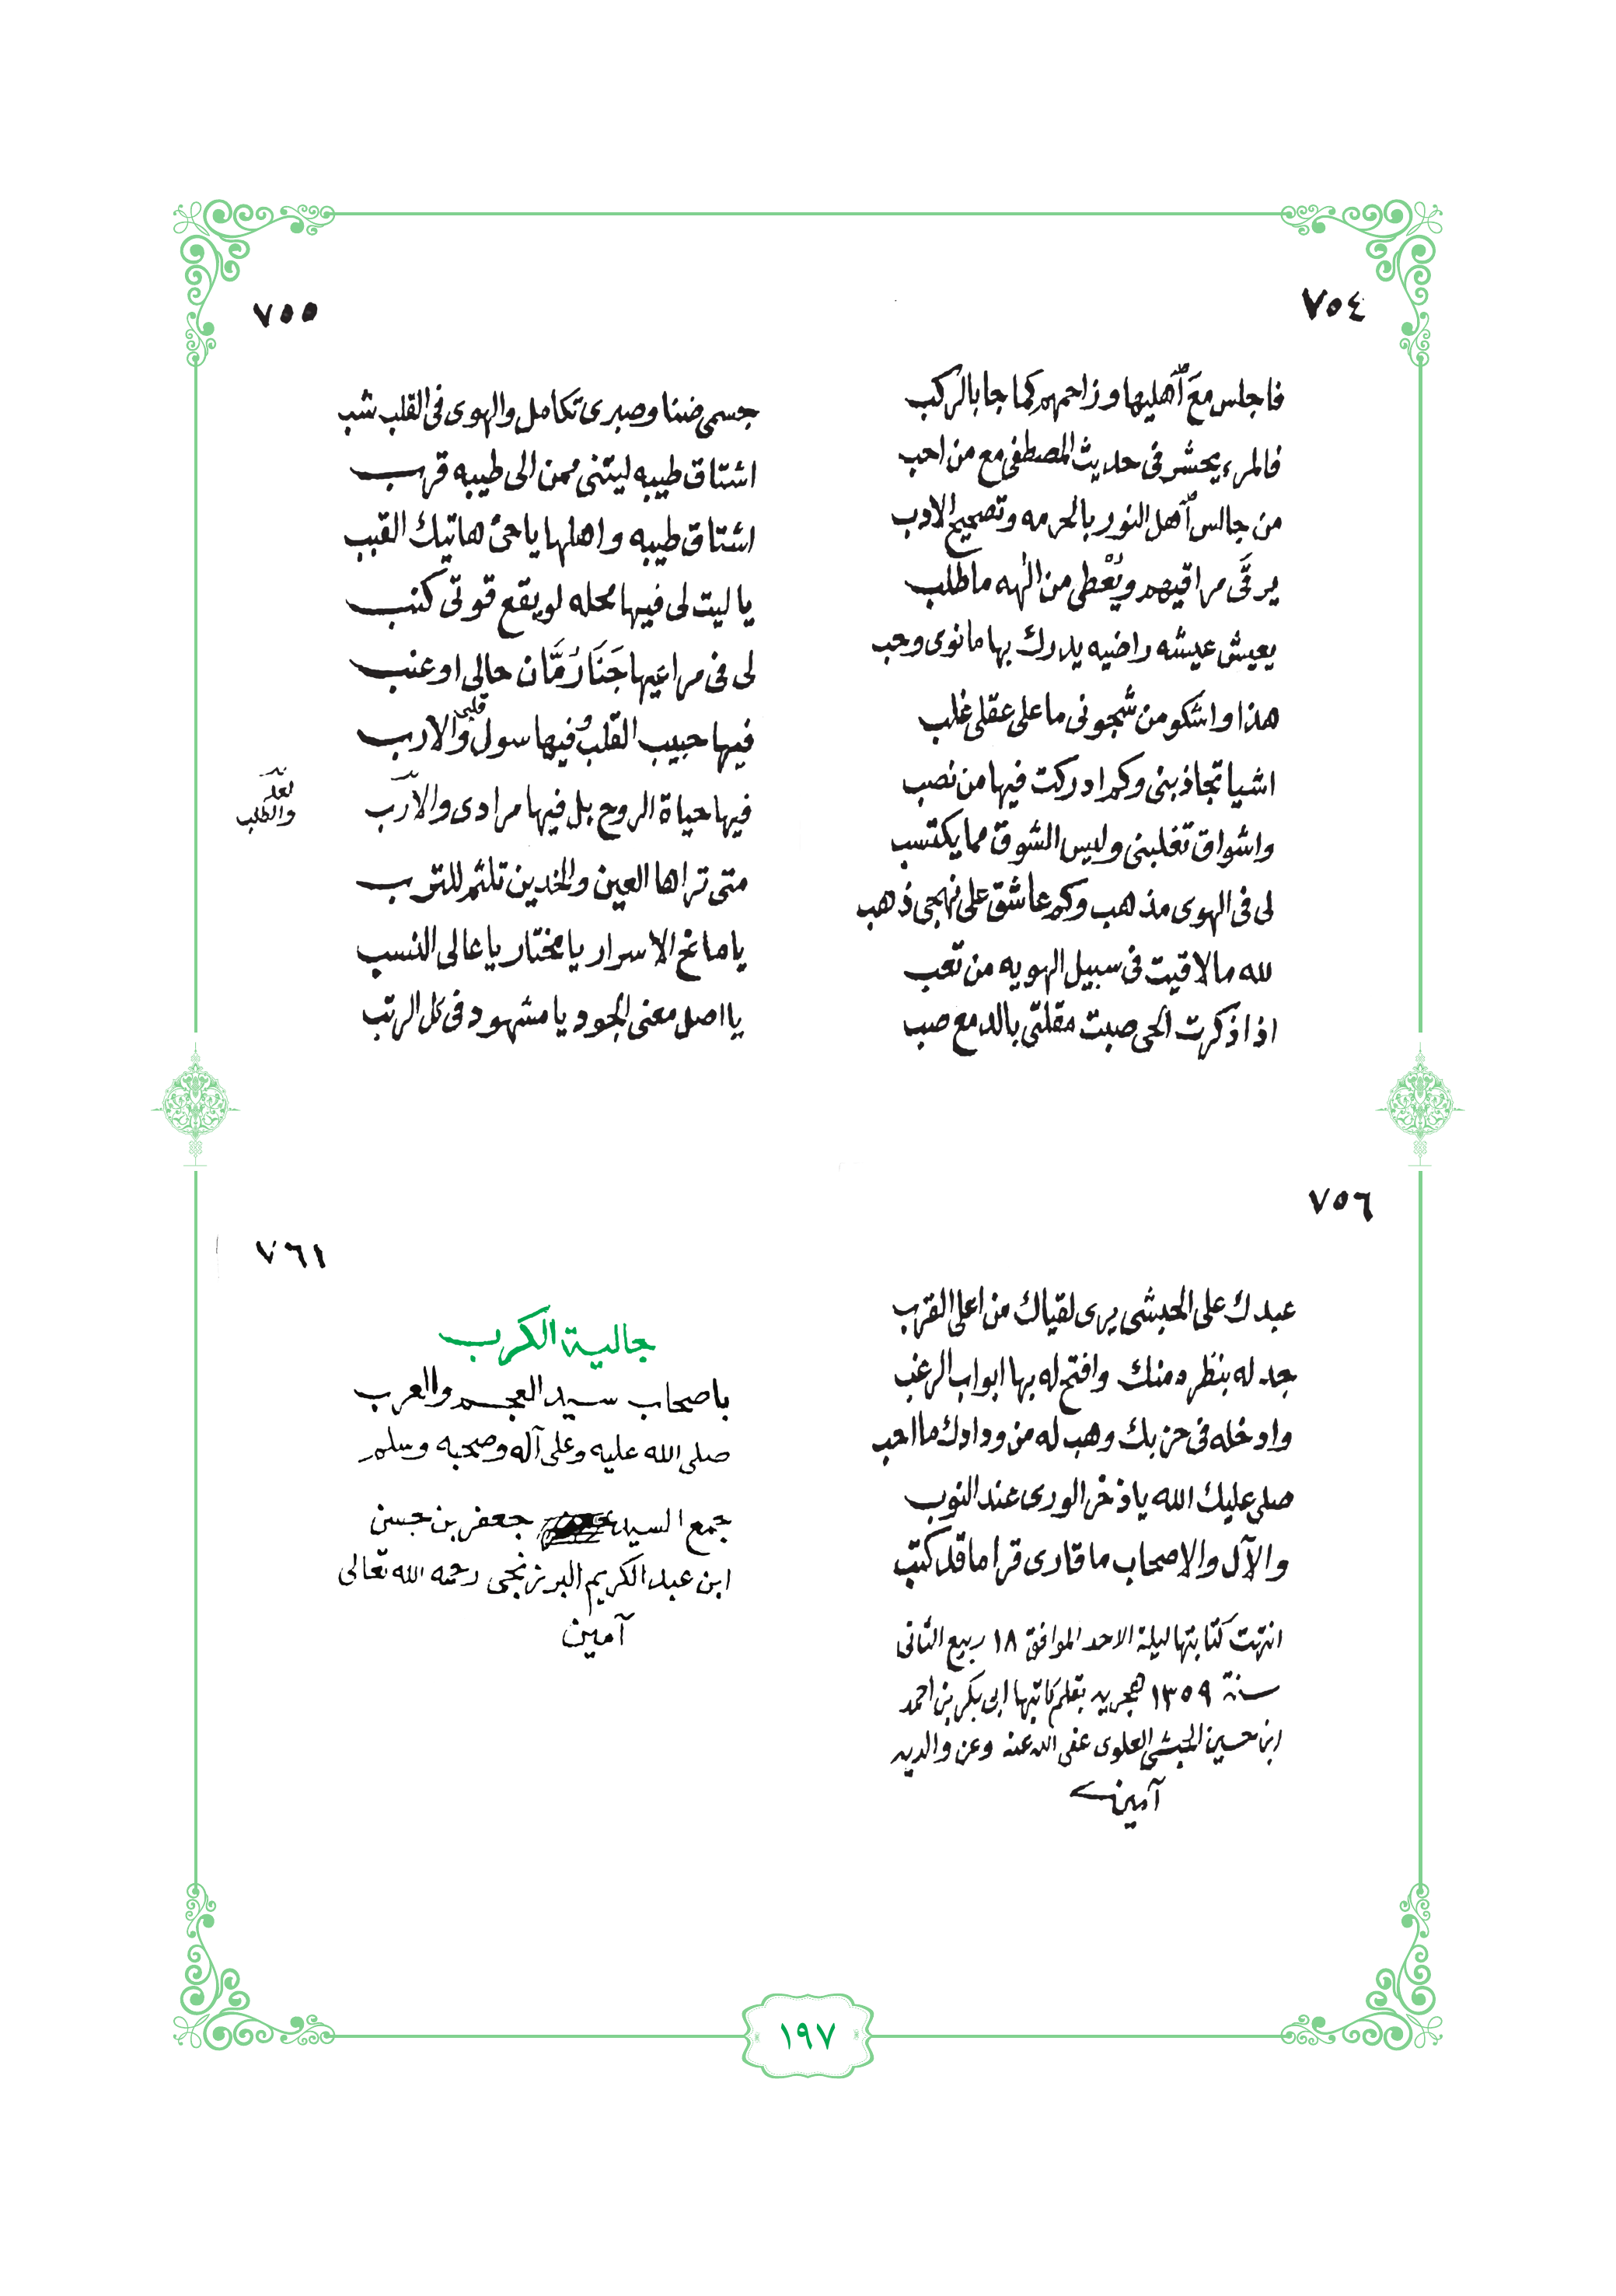 ٧٥٤
فاجلس مَعَ آهليها وزاحمهم كما جا بالركب
فالمرء يحشر فى حديث المصطفى مع من احب
من جالس آهل النور بالحرمه وتصحيح الادب
يرقَى مراقيهم ويُعْطى من الٰهه ما طلب
يعيش عيشه راضيه يدرك بها ما نوى وحب
هذا واشكو من شُجونى ما على عقلى غلب
اشيا تجاذبنى وكم ادركت فيها من نصب
واشواق تغلبنى وليس الشوق مما يكتسب
لى فى الهوى مذهب وكم عاشق على نهجى ذهب
لله ما لاقيت فى سبيل الهويه من تعب
اذا ذكرت الحى صبت مقلتى بالدمع صب
٧٥٥
جسمى ضنا وصبرى تكامل والهوى فى القلب شب
اشتاق طيبه ليتنى ممن الى طيبه قرب
اشتاق طيبه واهلها يا حىّ هاتيك القبب
يا ليت لى فيها محله لو يقع قوتى كنب
لى فى مراعيها جَنَا رُمَّان حالى او عنب
فيها حبيب القلبُ فيها سول قلبى والارب
فيها حياة الروح بل فيها مرادى والارب
لعله
والطلب
متى تراها العين والخدين تلثم للترب
يا مانح الاسرار يا مختار يا عالى النسب
يا اصل معنى الجود يا مشهود فى كل الرتب
٧٥٦
عبدك على الحبشى يرى لقياك من اعلى القرب
جد له بنظره منك وافتح له بها ابواب الرغب
وادخله فى حزبك وهب له من ودادك ما احب
صلى عليك الله يا ذخر الورى عند النوب
والآل والاصحاب ما قارى قرا ما قد كتب
انتهت كتابتها ليلة الاحد الموافق ١٨ ربيع الثانى
سنة ١٣٥٩ هجريه بقلم كاتبها ابى بكر بن احمد
ابن حسين الحبشى العلوى عفى الله عنه وعن والديه
آمين
٧٦١
جالية الكرب
باصحاب سيد العجم والعرب
صلى الله عليه وعلى آله وصحبه وسلم
جمع السيد جعفر بن حسن
ابن عبد الكريم البرزنجى رحمه الله تعالى
آمين
١٩٧